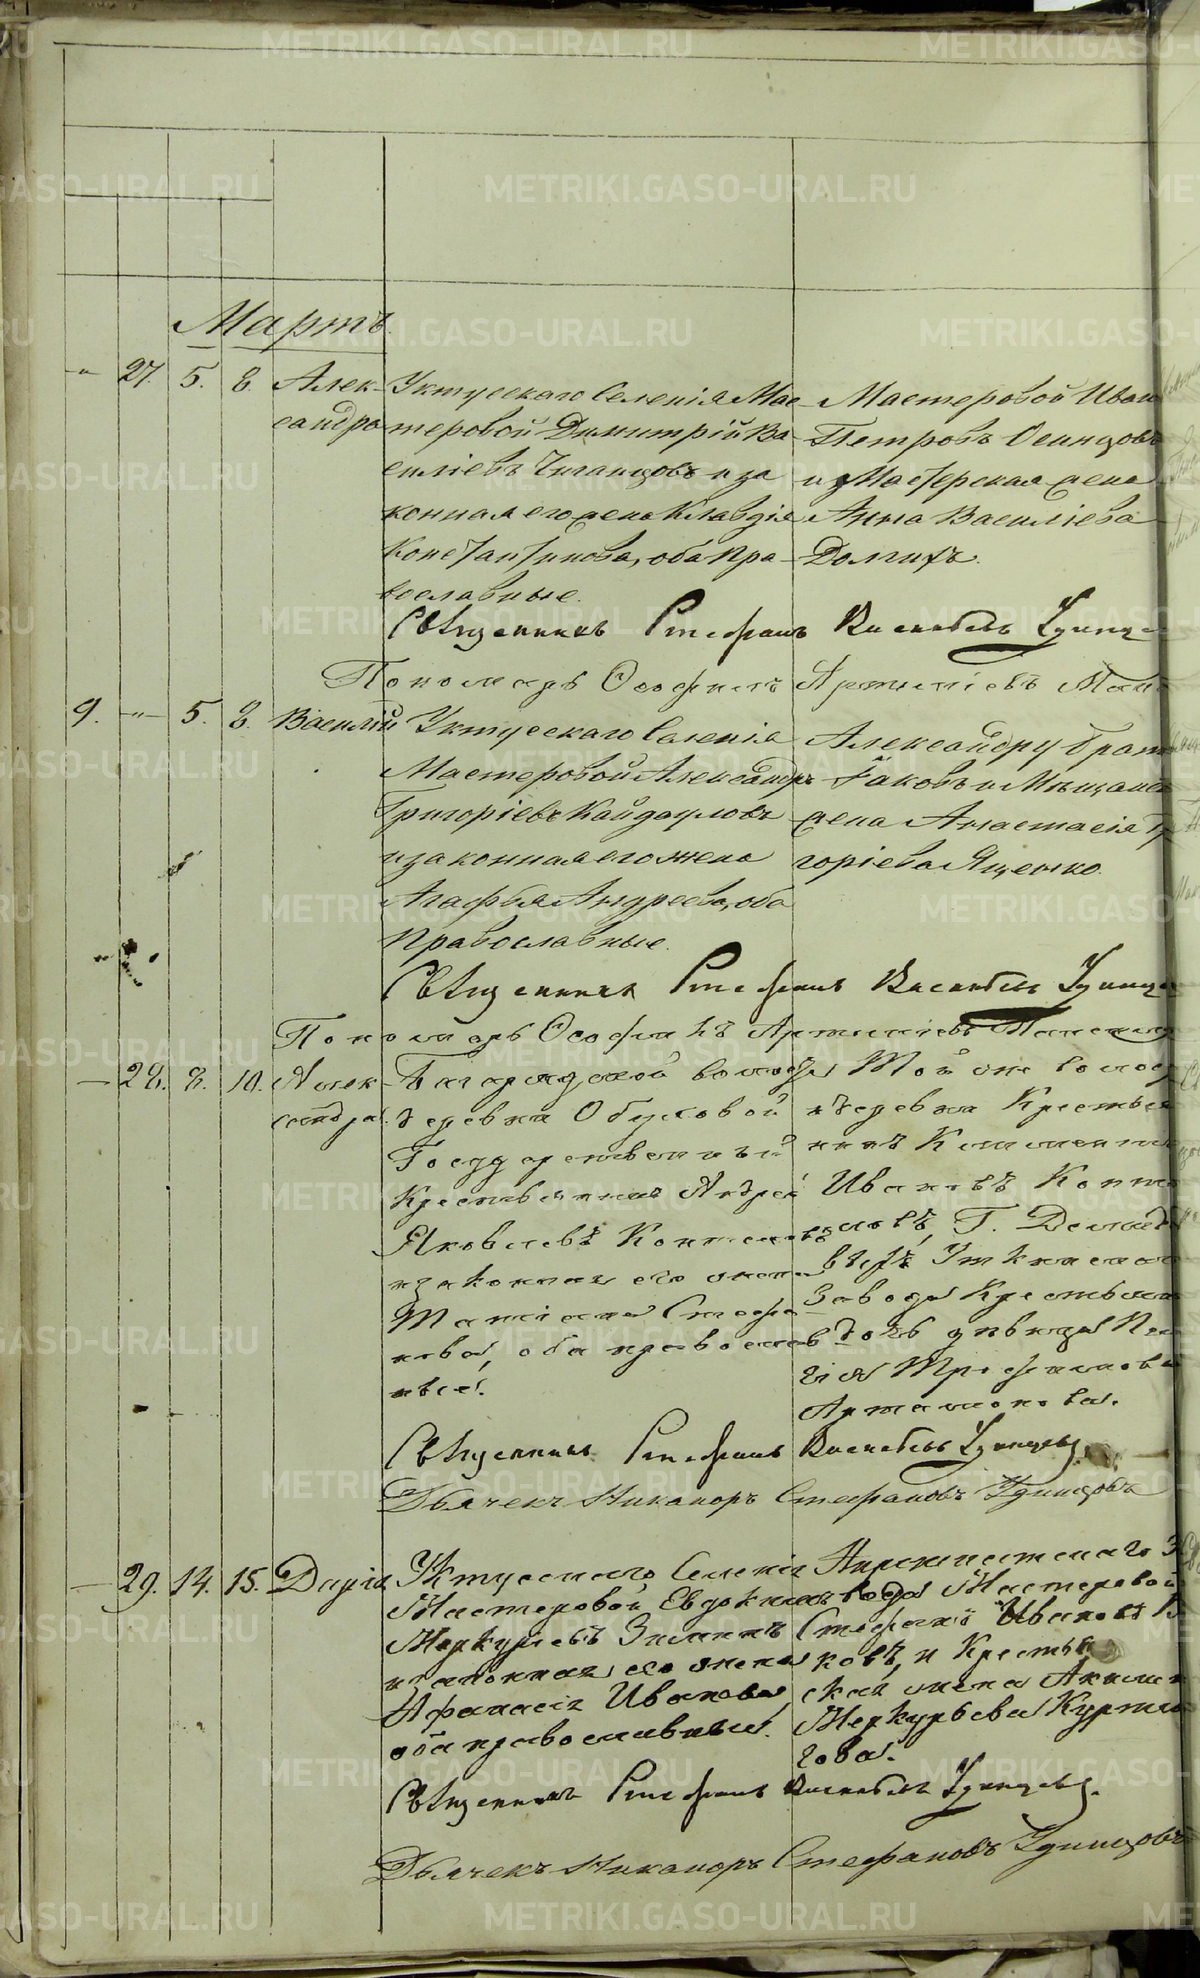 METRIKI.GASO-URAL.RU
Мартъ
-"- 27. 5. 8. Алек-
сандра
Уктусскаго Селенія Мас-
теровой Димитрій Ва-
силіевъ Чиганцовъ и за
конная его жена Клавдія
Константинова, оба пра-
вославные.
Мастеровой Иван
Петровъ Осинцовъ
и Мастерская жена
Анна Василіева
Долгихъ.
Священникъ Стефанъ Васильевъ Удинце
Пономарь Ѳеофилъ Артеміевъ
9. -"- 5. 8. Василій
Уктусскаго Селенія
Мастеровой Александръ
Григоріевъ Кайдауловъ
и законная его жена
Агафья Андреева, оба
Православные.
Александру братъ
Іаковъ и Мѣщанск
жена Анастасія Гр
горіева Яценко.
Священникъ Стефанъ Васильевъ Удинце
Пономарь Ѳеофилъ Артеміевъ
- 28. 8. 10. Алек
сандра.
волости
деревни Обуховой
Государственный
Крестьянинъ Андрей
Яковлевъ
и законная его жена
Татіана Стефа-
нова, оба православ
ные.
Той же волос
и деревни Крестья
нинъ Климентъ
Ивановъ
Г. Демид
выхъ Уткинска
завода Крестьянс
дочь дѣвица Пел
гія Трофимова
Артамонова.
Священникъ Стефанъ Васильевъ Удинцевъ.
Дьячекъ Никаноръ Стефановъ Удинцовъ
- 29. 14. 15. Дарія
Уктусскаго Селенія
Мастеровой Евдокимъ
Меркурьевъ Зиминъ
и законная его жена
Афанасія Иванова
оба православный.
завода Мастеровой
Стефанъ Ивановъ
ковъ, и Крестья
ская жена Акилин
Меркурьева
гова.
Священникъ Стефанъ Васильевъ Удинцевъ.
Дьячекъ Никаноръ Стефановъ Удинцовъ